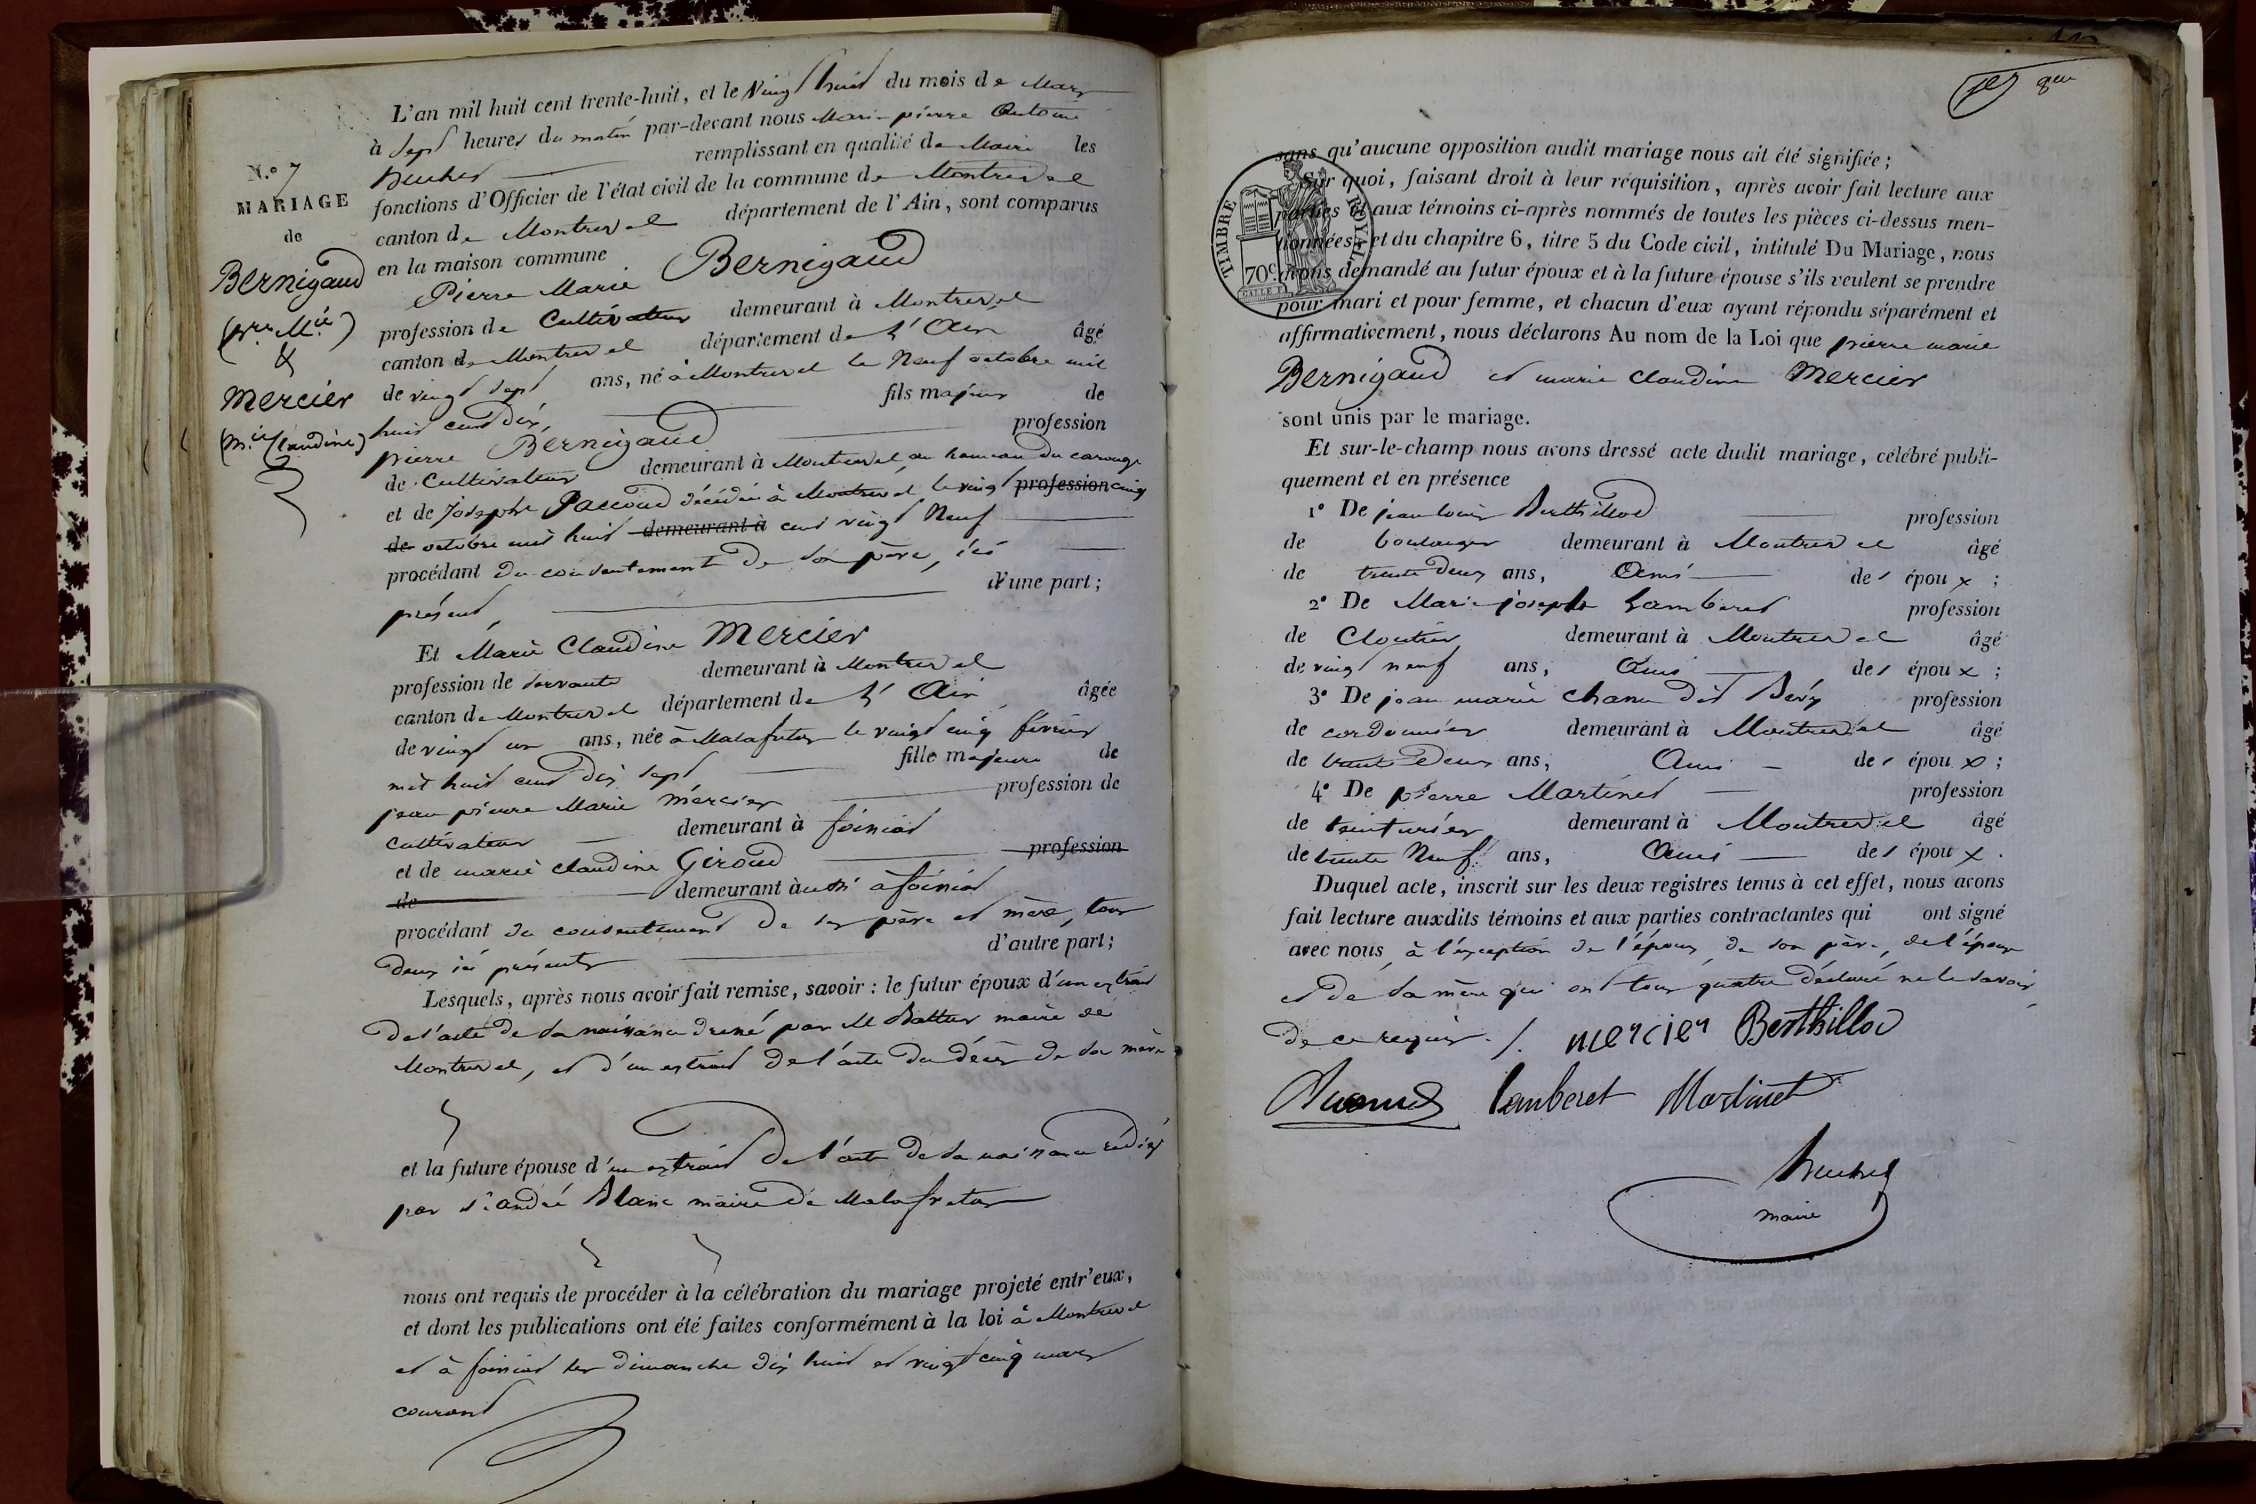 N.º 7
MARIAGE
de
Bernigaud
(Pre. Mie.)
&
Mercier
(Mie. Claudine)
L'an mil huit cent trente-huit, et le vingt huit du mois de Mars
à sept heures du matin par-devant nous Marie pierre Antoine
remplissant en qualité de Maire les
fonctions d'Officier de l'état civil de la commune de Montrevel
canton de Montrevel département de l'Ain, sont comparus
en la maison commune
Pierre Marie Bernigaud
profession de Cultivateur demeurant à Montrevel
canton de Montrevel département de L'Ain âgé
de vingt sept ans, né à Montrevel le Neuf octobre mil
huit cent dix, fils majeur de
pierre Bernigaud profession
de Cultivateur demeurant à Montrevel, au hameau du carouge
et de Josephe Paccoud décédée à Montrevel le vingt profession cinq
de octobre mil huit demeurant à cent vingt Neuf
procédant du consentement de son père, ici
présent, d'une part;
Et Marie Claudine Mercier
profession de servante demeurant à Montrevel
canton de Montrevel département de L'Ain âgée
de vingt un ans, née à Malafretaz le vingt cinq février
mil huit cent dix sept fille majeure de
jean pierre Marie Mercier profession de
cultivateur demeurant à foissiat
et de marie claudine Giroud profession
de demeurant aussi à foissiat
procédant du consentement de ses père et mère, tous
deux ici présents d'autre part;
Lesquels, après nous avoir fait remise, savoir : le futur époux d'un extrait
de l'acte de sa naissance dressé par M maire de
Montrevel, et d'un extrait de l'acte du décès de sa mère
et la future épouse d'un extrait de l'acte de sa naissance rédigé
par sr. andré Blanc maire de Malafretaz
nous ont requis de procéder à la célébration du mariage projeté entr'eux,
et dont les publications ont été faites conformément à la loi à Montrevel
et à foissiat les dimanche dix huit et vingt cinq mars
courant
TIMBRE ROYAL
70c
sans qu'aucune opposition audit mariage nous ait été signifiée;
Sur quoi, faisant droit à leur réquisition, après avoir fait lecture aux
parties et aux témoins ci-après nommés de toutes les pièces ci-dessus men-
tionnées, et du chapitre 6, titre 5 du Code civil, intitulé Du Mariage, nous
avons demandé au futur époux et à la future épouse s'ils veulent se prendre
pour mari et pour femme, et chacun d'eux ayant répondu séparément et
affirmativement, nous déclarons Au nom de la Loi que pierre marie
Bernigaud et marie claudine Mercier
sont unis par le mariage.
Et sur-le-champ nous avons dressé acte dudit mariage, célébré publi-
quement et en présence
1º De jean louis Berthillod profession
de boulanger demeurant à Montrevel âgé
de trente deux ans, Ami des époux;
2º De Marie joseph Lamberet profession
de Cloutier demeurant à Montrevel âgé
de vingt neuf ans, Ami des époux;
3º De jean marie chanu dit profession
de cordonnier demeurant à Montrevel âgé
de trente deux ans, Ami des époux;
4º De pierre Martinet profession
de teinturier demeurant à Montrevel âgé
de trente Neuf ans, Ami des époux.
Duquel acte, inscrit sur les deux registres tenus à cet effet, nous avons
fait lecture auxdits témoins et aux parties contractantes qui ont signé
avec nous, à l'exception de l'époux, de son père, de l'épouse
et de sa mère qui ont tous quatre déclaré ne le savoir
de ce requis ./. mercier Berthillod
lamberet Martinet
maire